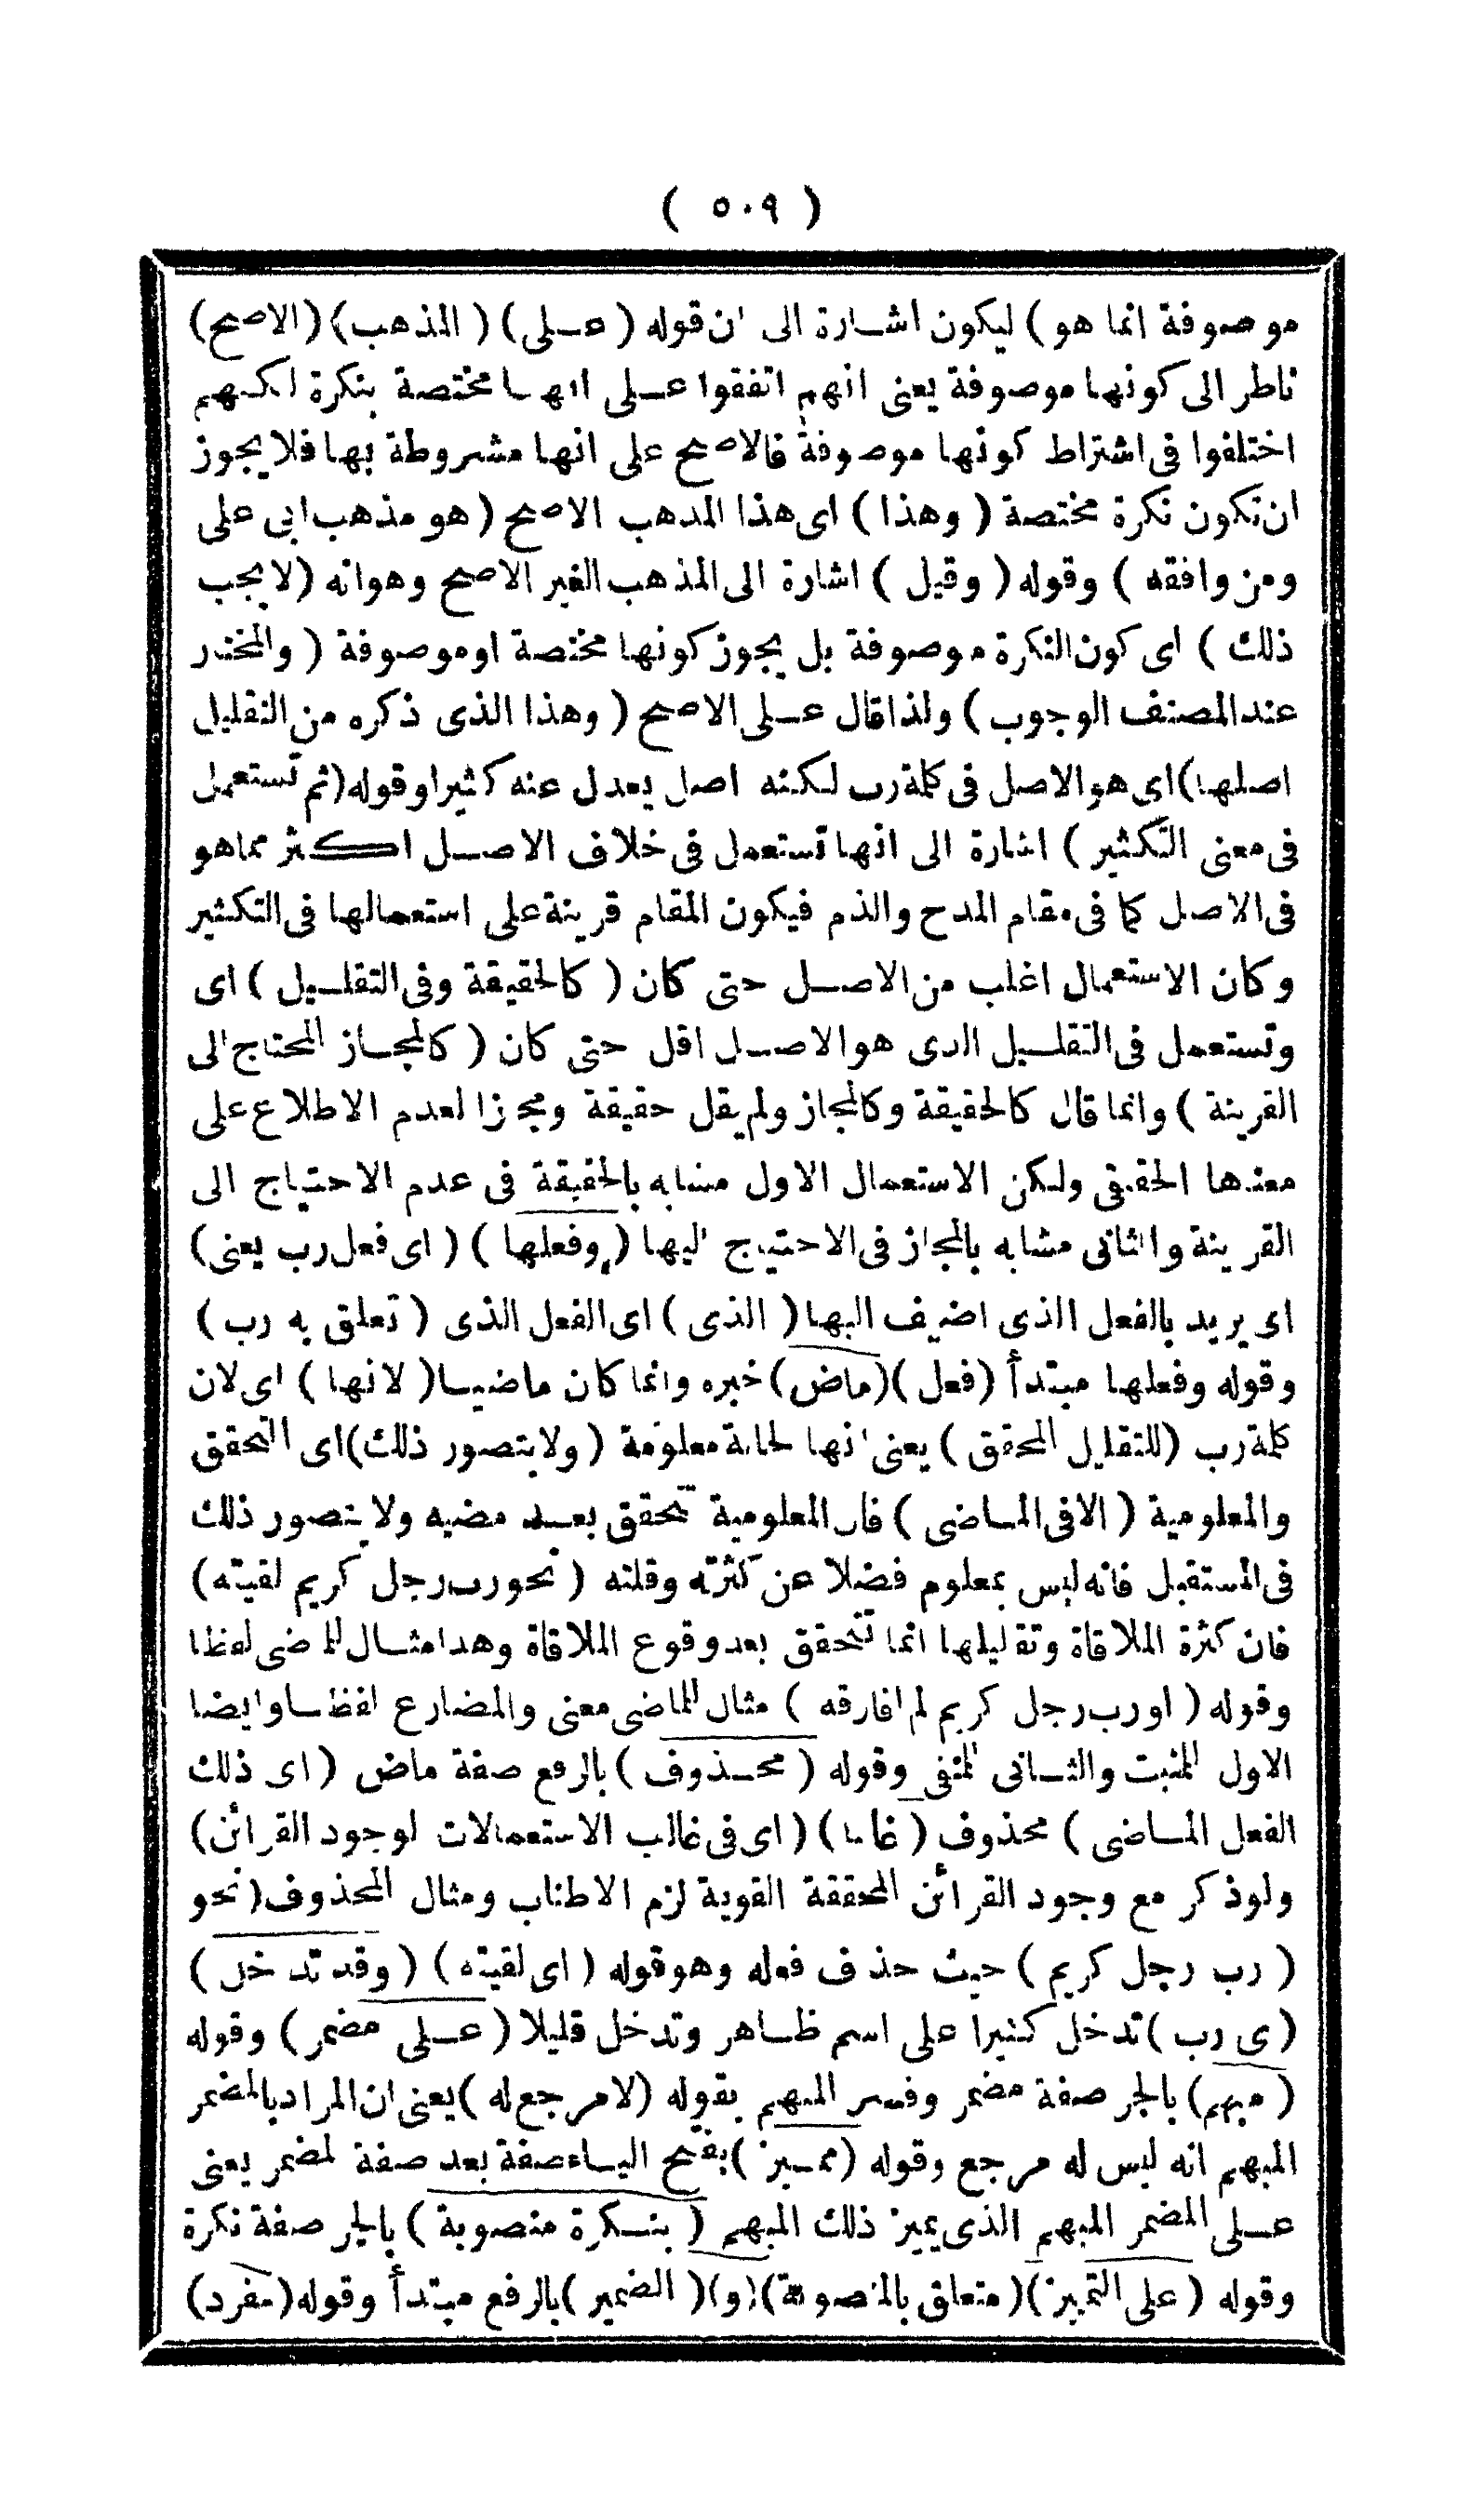 ( ٥٠٩ )
موصوفة انما هو ) ليكون اشارة الى ان قوله ( على ) ( المذهب ) ( الاصح )
ناظر الى كونها موصوفة يعنى انهم اتفقوا على انها مختصة بنكرة لكنهم
اختلفوا فى اشتراط كونها موصوفة فالاصح على انها مشروطة بها فلا يجوز
ان تكون نكرة مختصة ( وهذا ) اى هذا المذهب الاصح ( هو مذهب ابى على
ومن وافقه ) وقوله ( وقيل ) اشارة الى المذهب الغير الاصح وهو انه ( لا يجب
ذلك ) اى كون النكرة موصوفة بل يجوز كونها مختصة او موصوفة ( والمختار
عند المصنف الوجوب ) ولذا قال على الاصح ( وهذا الذى ذكره من التقليل
اصلها ) اى هو الاصل فى كلمة رب لكنه اصل يعدل عنه كثيرا وقوله ( ثم تستعمل
فى معنى التكثير ) اشارة الى انها تستعمل فى خلاف الاصل اكثر مما هو
فى الاصل كما فى مقام المدح والذم فيكون المقام قرينة على استعمالها فى التكثير
وكان الاستعمال اغلب من الاصل حتى كان ( كالحقيقة وفى التقليل ) اى
وتستعمل فى التقليل الذى هو الاصل اقل حتى كان ( كالمجاز المحتاج الى
القرينة ) وانما قال كالحقيقة وكالمجاز ولم يقل حقيقة ومجازا لعدم الاطلاع على
معناها الحقيقى ولكن الاستعمال الاول مشابه بالحقيقة فى عدم الاحتياج الى
القرينة والثانى مشابه بالمجاز فى الاحتياج اليها ( وفعلها ) ( اى فعل رب يعنى )
اى يريد بالفعل الذى اضيف اليها ( الذى ) اى الفعل الذى ( تعلق به رب )
وقوله وفعلها مبتدأ ( فعل ) ( ماض ) خبره وانما كان ماضيا ( لانها ) اى لان
كلمة رب ( للتقليل المحقق ) يعنى انها لحالة معلومة ( ولا يتصور ذلك ) اى التحقق
والمعلومية ( الا فى الماضى ) فان المعلومية تحقق بعد مضيه ولا يتصور ذلك
فى المستقبل فانه ليس بمعلوم فضلا عن كثرته وقلته ( نحو رب رجل كريم لقيته )
فان كثرة الملاقاة وتقليلها انما تتحقق بعد وقوع الملاقاة وهذا مثال للماضى لفظا
وقوله ( او رب رجل كريم لم افارقه ) مثال للماضى معنى والمضارع لفظا وايضا
الاول المثبت والثانى المنفى وقوله ( محذوف ) بالرفع صفة ماض ( اى ذلك
الفعل الماضى ) محذوف ( غالبا ) ( اى فى غالب الاستعمالات لوجود القرائن )
ولو ذكر مع وجود القرائن المحققة القوية لزم الاطناب ومثال المحذوف ( نحو
( رب رجل كريم ) حيث حذف فعله وهو قوله ( اى لقيته ) ( وقد تدخل )
( اى رب ) تدخل كثيرا على اسم ظاهر وتدخل قليلا ( على مضمر ) وقوله
( مبهم ) بالجر صفة مضمر وفسر المبهم بقوله ( لا مرجع له ) يعنى ان المراد بالمضمر
المبهم انه ليس له مرجع وقوله ( مميز ) بفتح الياء صفة بعد صفة لمضمر يعنى
على المضمر المبهم الذى يميز ذلك المبهم ( بنكرة منصوبة ) بالجر صفة نكرة
وقوله ( على التميز ) ( متعلق بالمنصوبة ) ( و ) ( الضمير ) بالرفع مبتدأ وقوله ( مفرد )